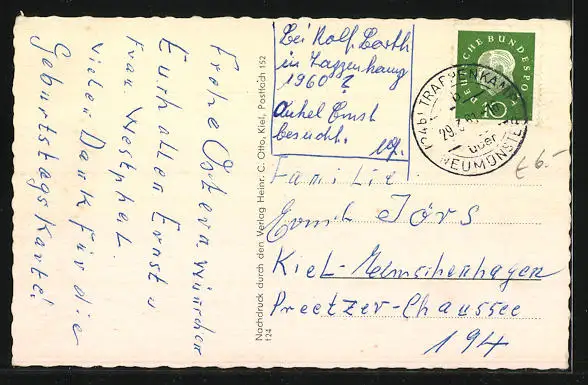 Frohe Ostern wünschen
Euch allen Ernst u
Frau Westphal.
vielen Dank für die
Geburtstags Karte!
Nachdruck durch den Verlag Heinr. C. Otto, Kiel, Postfach 152
124
Bei Rolf Barth
in
1960 ?
Onkel Ernst
besucht.
DEUTSCHE BUNDESPOST
10
(24b) TRAPPENKAMP
über
NEUMÜNSTER
£6.-
Familie
Emil Jörs
Kiel-Elmschenhagen
Preetzer-Chaussee
194